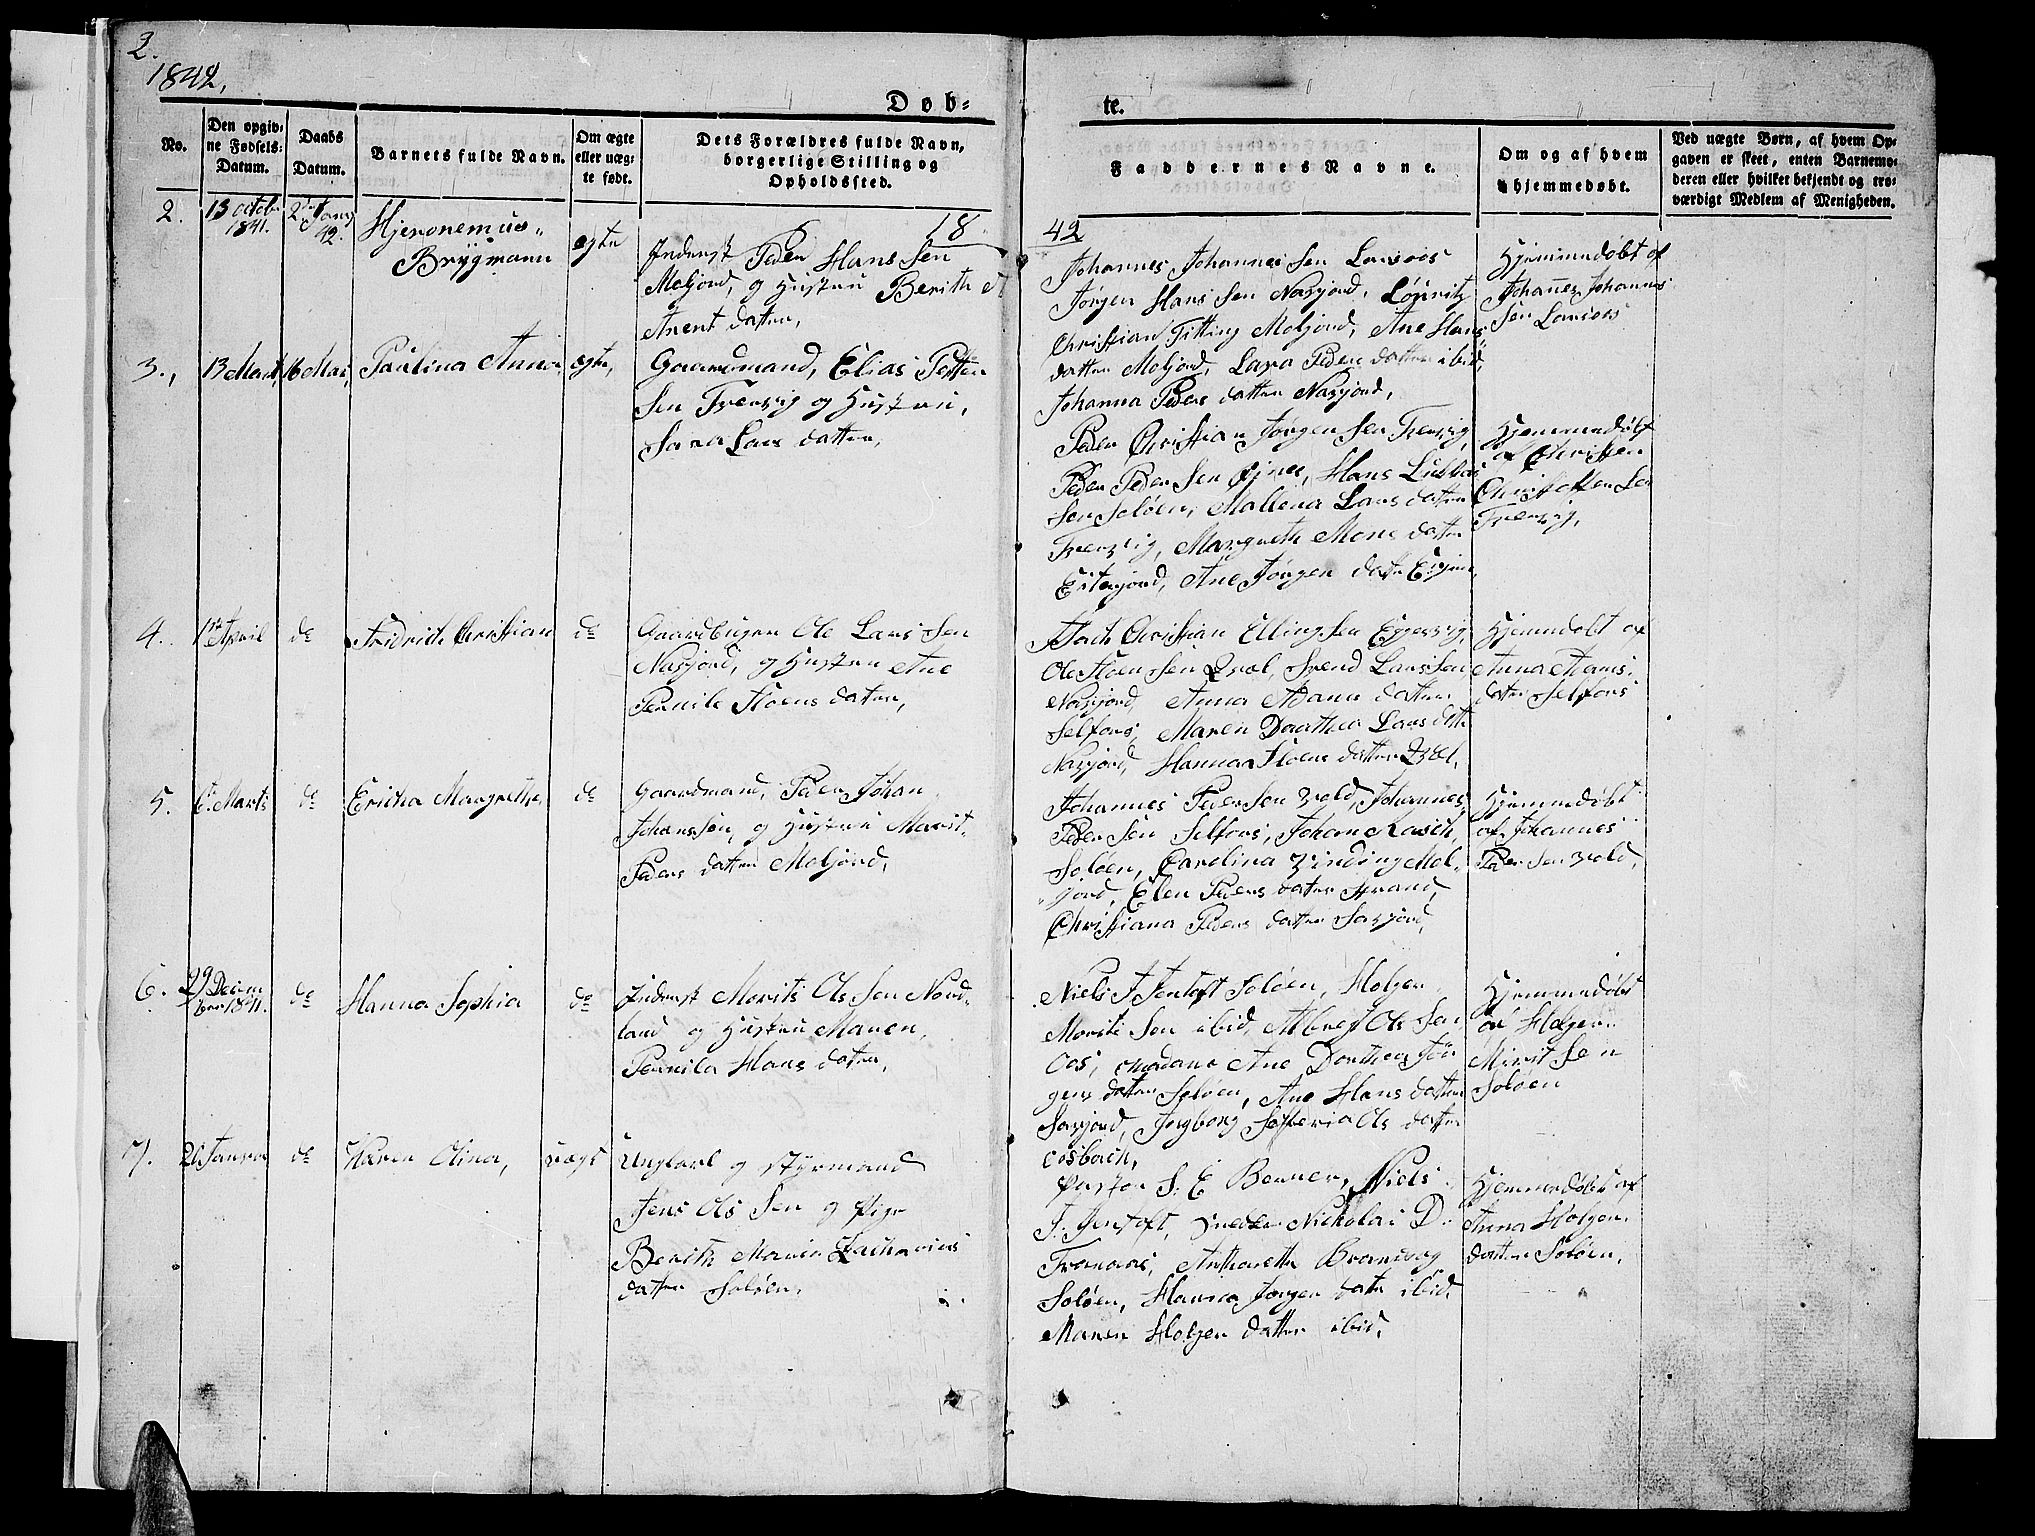 2.
1842.
Døb-
te.
No.
Den opgiv-
ne Fødsels-
Datum.
Daabs
Datum.
Barnets fulde Navn.
Om ægte
eller uæg-
te født.
Dets Forældres fulde Navn,
borgerlige Stilling og
Opholdssted.
Faddernes Navne.
Om og af hvem
hjemmedøbt.
Ved uægte Børn, af hvem Op-
gaven er skeet, enten Barnemo-
deren eller hvilket bekjendt og tro-
værdigt Medlem af Menigheden.
18
42
2.
13 octobr
1841.
42.
Hjeronemus
Brygmann
egte
Inderst Peder Hans Sen
Moljord, og Hustru Berith
Arent datter,
Johannes Johannes Sen
Jørgen Hans Sen Nasjord,
Christian Fitting Moljord, Ane Hans
datter Moljord, Lava Peder datter ibid,
Johanna Peders datter Nasjord,
Hjemmedøbt af
Johannes Johannes
Sen
3.,
13 Marts
16 Mai
Paulina Anna
egte,
Gaardmand, Elias Petter
Sen Trervig og Hustru,
Sara Lars datter,
Peder Christian Jørgen Sen Trervig,
Peder Peder Sen Øjnes, Hans
Sen Soløen, Mallena Lars datter
Trervig, Margreth Mons datter
Ane Jørgen datr
Hjemmedøbt
af Christen
Christoffer Sen
Trervig,
4.
1ste April
do
Fridrich Christian
do
Gaardbruger Ole Lars Sen
Nasjord, og Hustru Ane
Pernile datter,
Christian Elling Sen
Ole Sen Qval, Svend Lars Sen
Nasjord Anna Adams datter
Selfors, Maren Dorthea Lars dattr
Nasjord, Hanna datter Qval,
Hjemmdøbt af
Anna Adams
datter Selfors
5.
6. Marts
do
Ericha Margrethe,
do
Gaardmand, Peder Johan
Johans Sen, og Hustru Marit
Peders datter Moljord,
Johannes Peder Sen Vold, Johannes
Peder Sen Selfors, Johan Rasch,
Soløen, Carolina Vinding Mol-
jord, Elen Peders datter Strand,
Christiana Peders datter Sarjord,
Hjemmedøbt
af Johannes
Peder Sen Vold,
6.
29 Decem
ber 1841.
do
Hanna Sophia
do
Inderst Morits Ols Sen Nord-
land og Hustru Maren,
Pernila Hans datter,
Niels J Jentoft Soløen, Holger
Morits Sen ibid, Albregt Ols Sen
Oos, Madame Ane Dorthea Jør
gens datter Soløen, Ane Hans datter
Sarjord, Ingborg Ols datter
Hjemmedøbt
af Holger
Morit Sen
Soløen
7.
20 Januar
do
Karen Olina,
uægt
Ungkarl og Styrmand
Jens Ols Sen og Pige
Berith Maria Zacharias
datter Soløen.
Pastor S. E Benner, Niels
J. Jentoft, Nickolai D.
Anthonetta
Soløen, Jørgen datr ibid.
Maren Holger datter ibid.
Hjemmedøbt af
Anna Holger
datter Soløen.